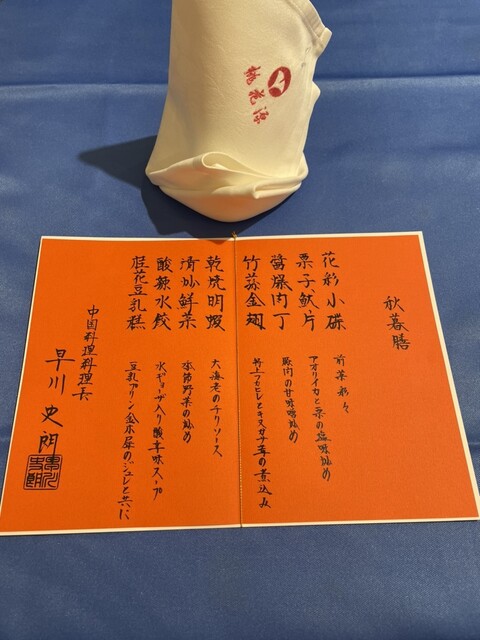 桃花源
秋暮膳
花彩小碟
前菜彩々
栗子魷片
アオリイカと栗の塩味炒め
醤爆肉丁
豚肉の甘味噌炒め
竹蓀金翅
フカヒレとキヌガサ茸の煮込み
乾焼明蝦
大海老のチリソース
清炒鮮菜
季節野菜の炒め
酸辣水餃
水ギョーザ入り酸辛味スープ
桂花豆乳糕
豆乳プリン金木犀のジュレと共に
中国料理料理長
早川史朗